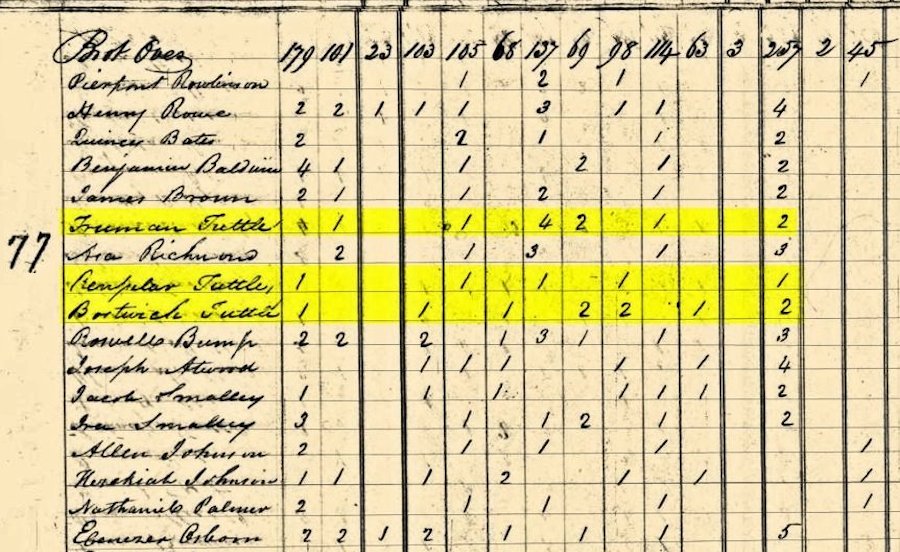 Brot Over 179 101 23 103 105 68 137 69 98 114 63 3 237 2 45
Pierpont Rowlinson 1 2 1 1
Henry Rowe 2 2 1 1 1 3 1 1 4
Quincy Bates 2 2 1 1 2
Benjamin Baldwin 4 1 1 2 1 2
James Brown 2 1 1 2 1 2
Truman Tuttle 1 1 4 2 1 2
77
Asa Richmond 2 1 3 1 3
Tuttle 1 1 1 1 1
Bostwick Tuttle 1 1 1 2 2 1 2
Roswell Bump 2 2 2 1 3 1 1 3
Joseph Atwood 1 1 1 1 1 4
Jacob Smalley 1 1 1 1 1 1 2
Ira Smalley 3 1 1 2 1 2
Allen Johnson 2 1 1 1 1
Hezekiah Johnson 1 1 1 2 1 1 1
Nathaniel Palmer 2 1 1 1 1
Ebenezer Osborn 2 2 1 2 1 1 1 5